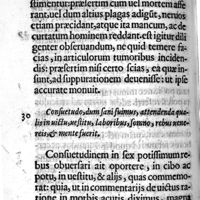 simentur: præsertim cum uel mortem affe
rant, uel dum altus plagas adigit, neruos
etiam præcidant, atque ita mancum, ac de
curtatum hominem reddant. est igitur dili
genter obseruandum, ne quid temere fa
cias, in articulorum tumoribus inciden
dis: præsertim nisi certo scias, ea quæ in
sunt, ad suppurationem deuenisse: ut ipse
accurate monuit.
30 Consuetudo, dum sani suimus, attendenda qua
lis in uictu, uestitu, laboribus, somno, rebus uene
reis, & mente fuerit.
Consuetudinem in sex potissimum re
bus obseruari ait oportere, in cibo ac
potu, in uestitu, & alijs, quas commemo
rat: quia, ut in commentarijs de uictus ra
tione in morbis acutis, diximus, magna